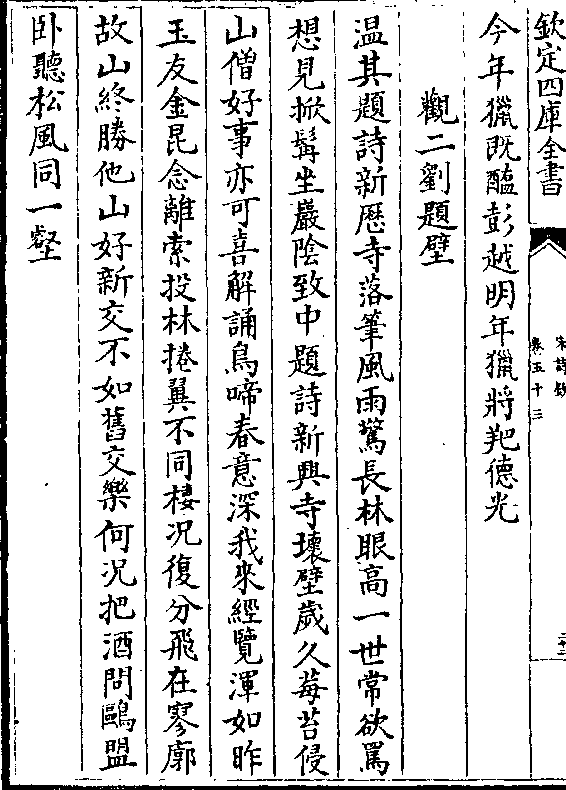 欽定四庫全書
宋詩鈔
卷五十三
二十二
今年獵既醢彭越明年獵將羓德光
觀二劉題壁
温其題詩新歴寺落筆風雨驚長林眼高一世常欲罵
想見掀髯坐巖隂致中題詩新興寺壞壁歲久莓苔侵
山僧好事亦可喜解誦鳥啼春意深我來經覽渾如昨
玉友金昆念離索投林捲翼不同棲况復分飛在寥廓
故山終勝他山好新交不如舊交樂何况把酒問鷗盟
卧聽松風同一壑